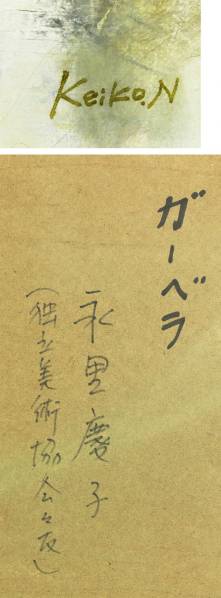 Keiko.N
ガーベラ
永里慶子
(独立美術協会々友)